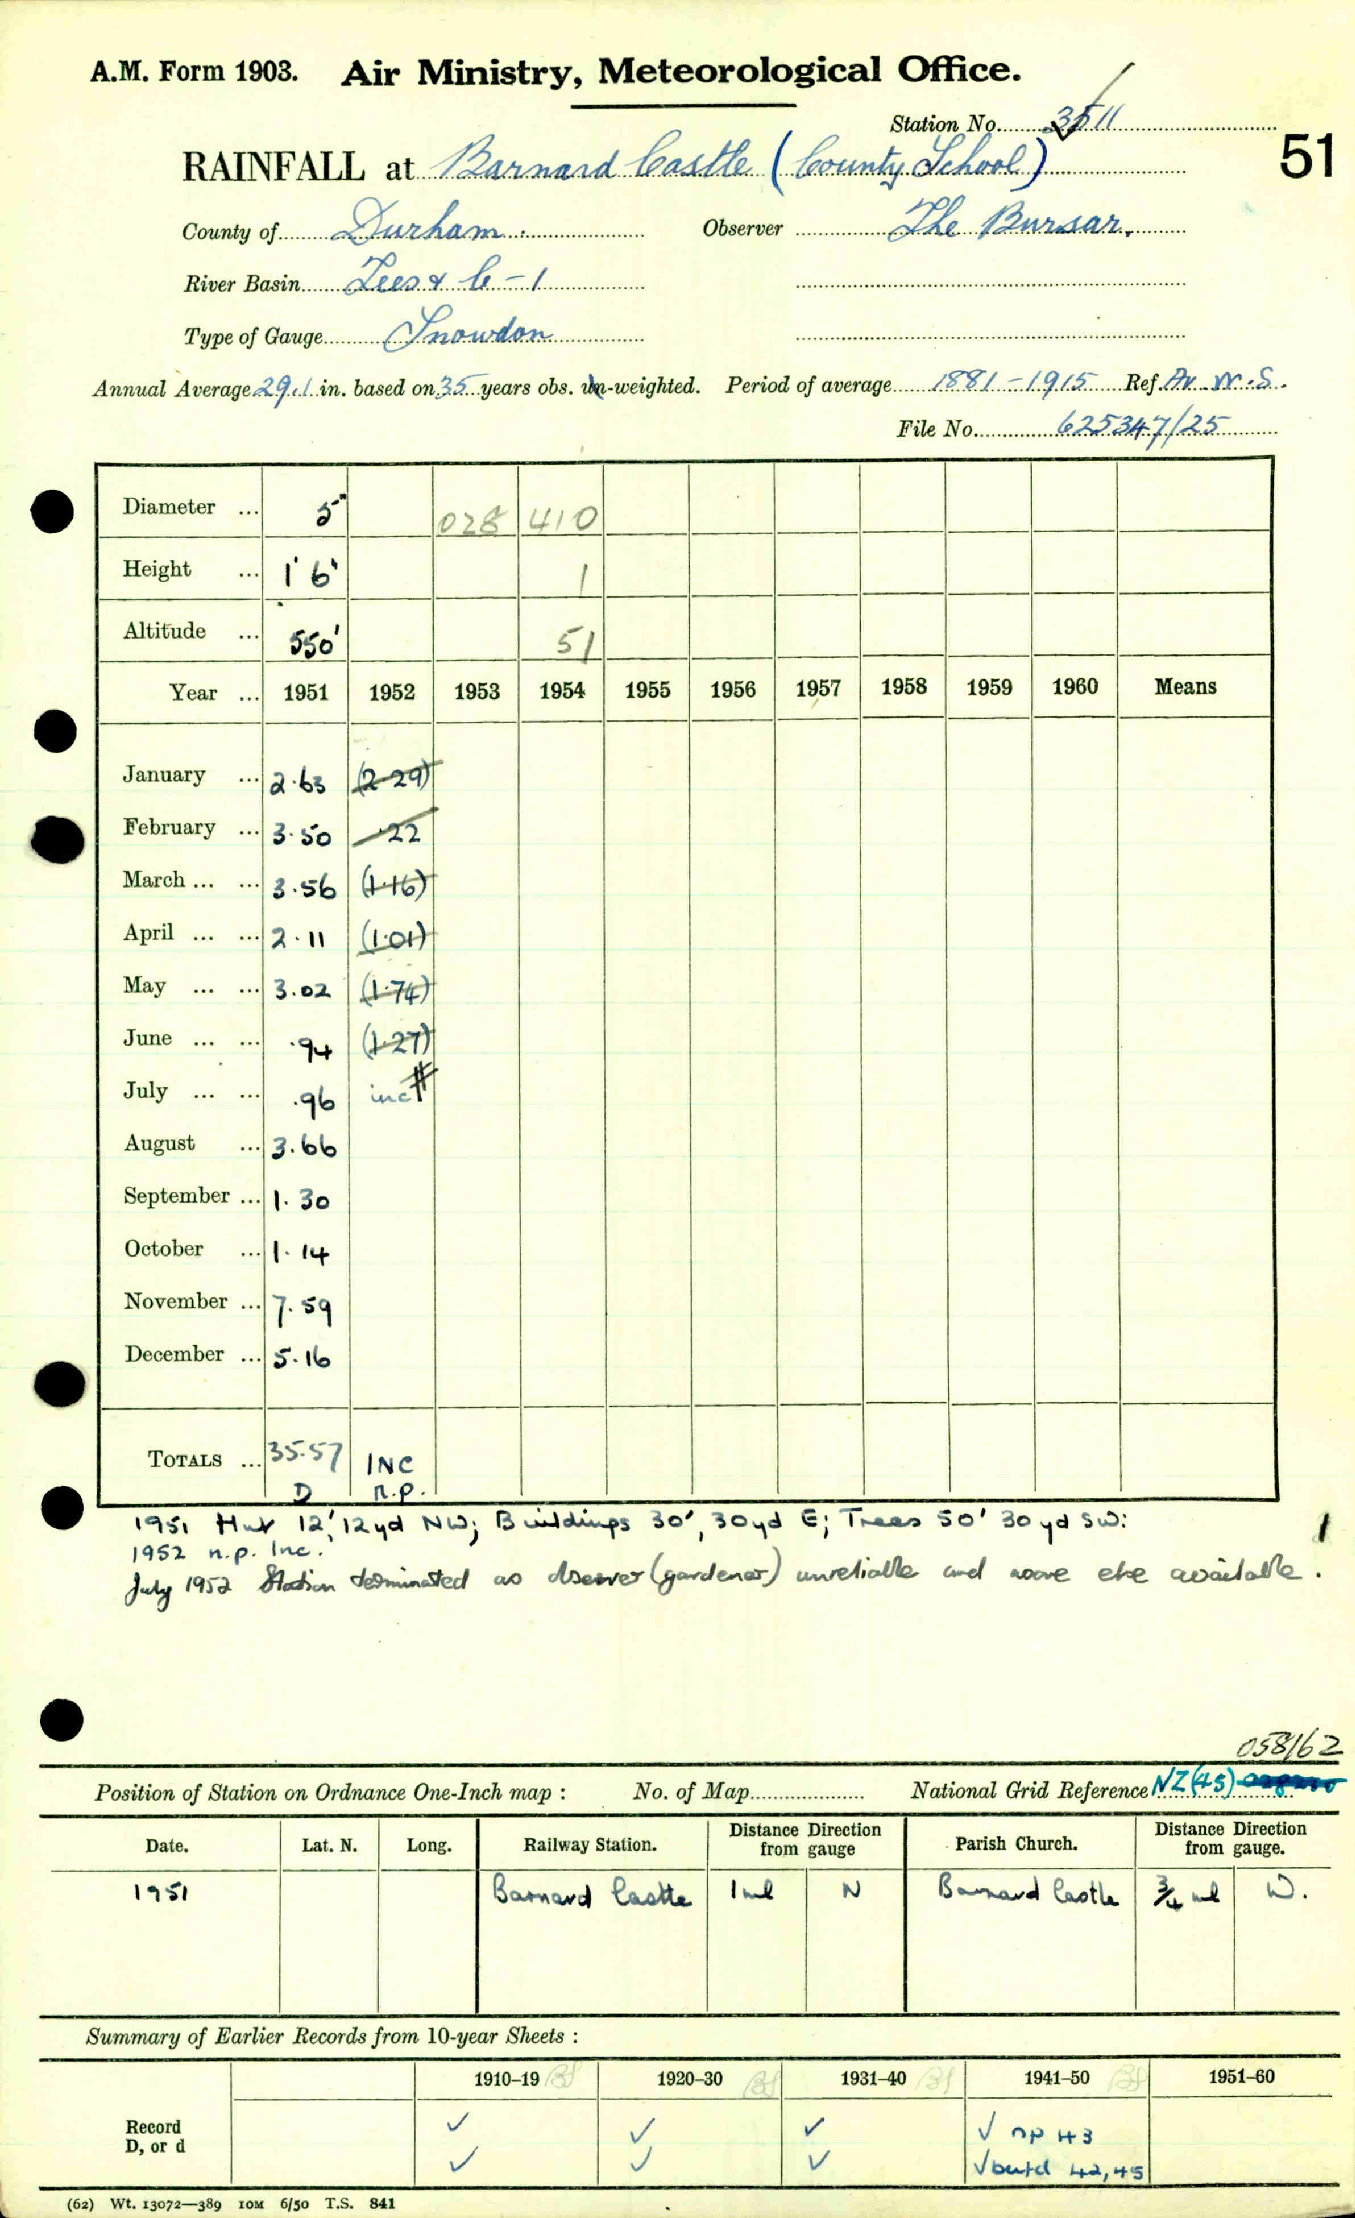 A.M. Form 1903. Air Ministry, Meteorological Office.
Station No. 3511
51
RAINFALL at Barnard Castle (County School)
County of Durham. Observer The Bursar.
River Basin Tees & C-1
Type of Gauge Snowdon
Annual Average 29.1 in. based on 35 years obs. un-weighted. Period of average 1881-1915 Ref. Av. W.S.
File No. 625347/25
Diameter ... 5" 028 410
Height ... 1' 6" 1
Altitude ... 550' 51
Year ... 1951 1952 1953 1954 1955 1956 1957 1958 1959 1960 Means
January ... 2.63 (2.29)
February ... 3.50 .22
March ... ... 3.56 (1.16)
April ... ... 2.11 (1.01)
May ... ... 3.02 (1.74)
June ... ... .94 (1.27)
July ... ... .96 inc #
August ... 3.66
September ... 1.30
October ... 1.14
November ... 7.59
December ... 5.16
TOTALS ... 35.57 INC
D n.p.
1951 Hut 12', 12yd NW; Buildings 30', 30yd E; Trees 50' 30yd SW:
1
1952 n.p. Inc.
July 1952 Station terminated as observer (gardener) unreliable and none else available.
058162
Position of Station on Ordnance One-Inch map : No. of Map National Grid Reference NZ(45)
Date. Lat. N. Long. Railway Station. Distance from Direction gauge Parish Church. Distance from Direction gauge.
1951 Barnard Castle 1 ml N Barnard Castle 3/4 ml W.
Summary of Earlier Records from 10-year Sheets :
1910–19 1920–30 1931–40 1941–50 1951–60
Record ✓ ✓ ✓ ✓ np 43
D, or d ✓ ✓ ✓ ✓ but d 42, 45
(62) Wt. 13072—389 10M 6/50 T.S. 841